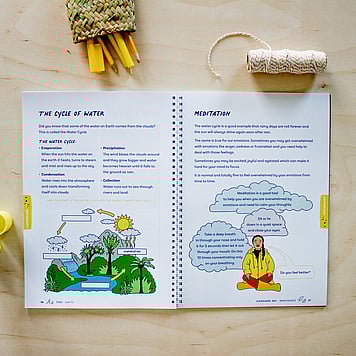 THE CYCLE OF WATER
Did you know that some of the water on Earth comes from the clouds?
This is called the Water Cycle.
THE WATER CYCLE
• Evaporation
When the sun hits the water on
the earth it heats, turns to steam
and mist and rises up to the sky
• Condensation
Water rises into the atmosphere
and cools down transforming
itself into clouds.
• Precipitation
The wind blows the clouds around
and they grow bigger and water
becomes heavier until it falls to
the ground as rain.
• Collection
Water runs out to sea through
rivers and land.
MEDITATION
The water cycle is a good example that rainy days are not forever and
the sun will always shine again soon after rain.
The same is true for our emotions. Sometimes you may get overwhelmed
with emotions like anger, sadness or frustration and you need help to
deal with those feelings.
Sometimes you may be excited, joyful and agitated which can make it
hard for your mind to focus.
It is normal and totally fine to feel overwhelmed by your emotions from
time to time.
Meditation is a good tool
to help you when you are overwhelmed by
emotions and need to calm your thoughts
Sit or lie
down in a quiet space
and close your eyes.
Take a deep breath
in through your nose and hold
it for 3 seconds then let it out
through your mouth. Do this
10 times concentrating only
on your breathing.
Do you feel better?